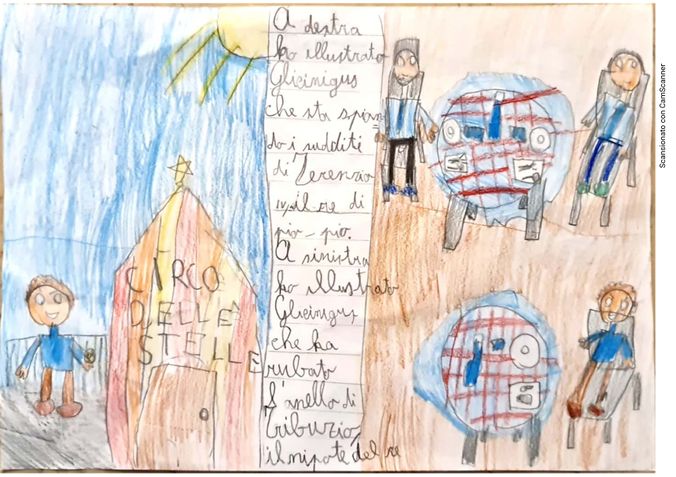 CIRCO
DELLE
STELLE
A destra
ho illustrato
Glicinigus
che sta spian
do i sudditi
di Terenzio
il re di
pio-pio.
A sinistra
ho illustrato
Glicinigus
che ha
rubato
l'anello di
Tiburzio,
il nipote del re
Scansionato con CamScanner